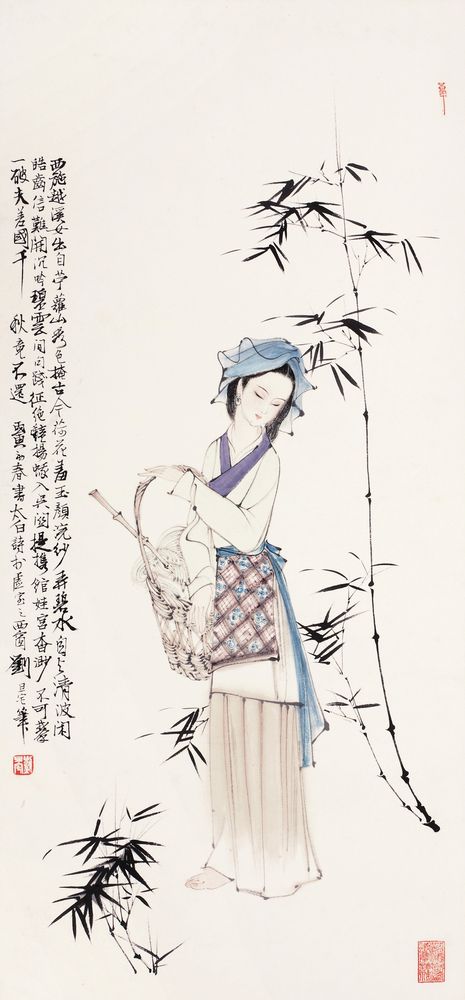 西施越溪女出自苧蘿山秀色掩古今荷花羞玉顏浣紗弄碧水自与清波閑
晧齒信難開沉吟碧雲間勾踐征絕艷揚蛾入吳關提攜館娃宮杳渺不可攀
一破夫差國千秋竟不還 寅春書太白詩於之西窗劉旦宅筆